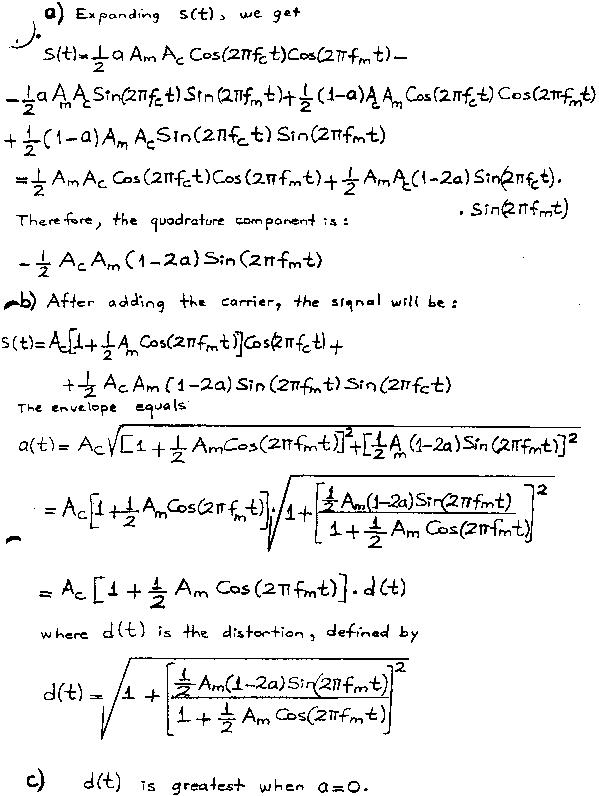 a) Expanding s(t), we get
S(t)=½ a Am Ac Cos(2πfct)Cos(2πfmt)−
−½ a Am Ac Sin(2πfct) Sin(2πfmt)+½ (1−a)Ac Am Cos(2πfct) Cos(2πfmt)
+ ½ (1−a) Am Ac Sin(2πfct) Sin(2πfmt)
=½ Am Ac Cos(2πfct)Cos(2πfmt)+½ Am Ac(1−2a) Sin(2πfct).
. Sin(2πfmt)
Therefore, the quadrature component is:
−½ Ac Am (1−2a) Sin(2πfmt)
b) After adding the carrier, the signal will be:
S(t)=Ac[1+½ Am Cos(2πfmt)]Cos(2πfct)+
+½ Ac Am (1−2a) Sin(2πfmt) Sin(2πfct)
The envelope equals
a(t)= Ac√([1+½ Am Cos(2πfmt)]²+[½ Am (1−2a) Sin(2πfmt)]²)
= Ac[1+½ Am Cos(2πfmt)].√(1+[½ Am(1−2a)Sin(2πfmt) / 1+½ Am Cos(2πfmt)]²)
= Ac [1+½ Am Cos(2πfmt)].d(t)
where d(t) is the distortion, defined by
d(t)=√(1+[½ Am(1−2a)Sin(2πfmt) / 1+½ Am Cos(2πfmt)]²)
c) d(t) is greatest when a=0.